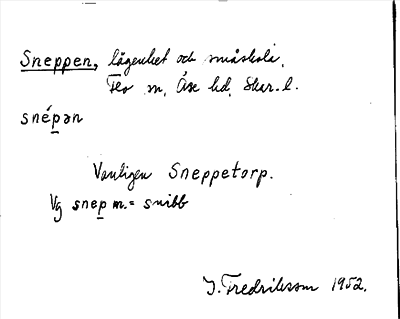 Sneppen, lägenhet och småskola.
Flo sn, Åse hd, Skar. l.
snép̲ən
Vanligen Sneppetorp.
Vg snep̲ m. = snibb
I. Fredriksson 1952.